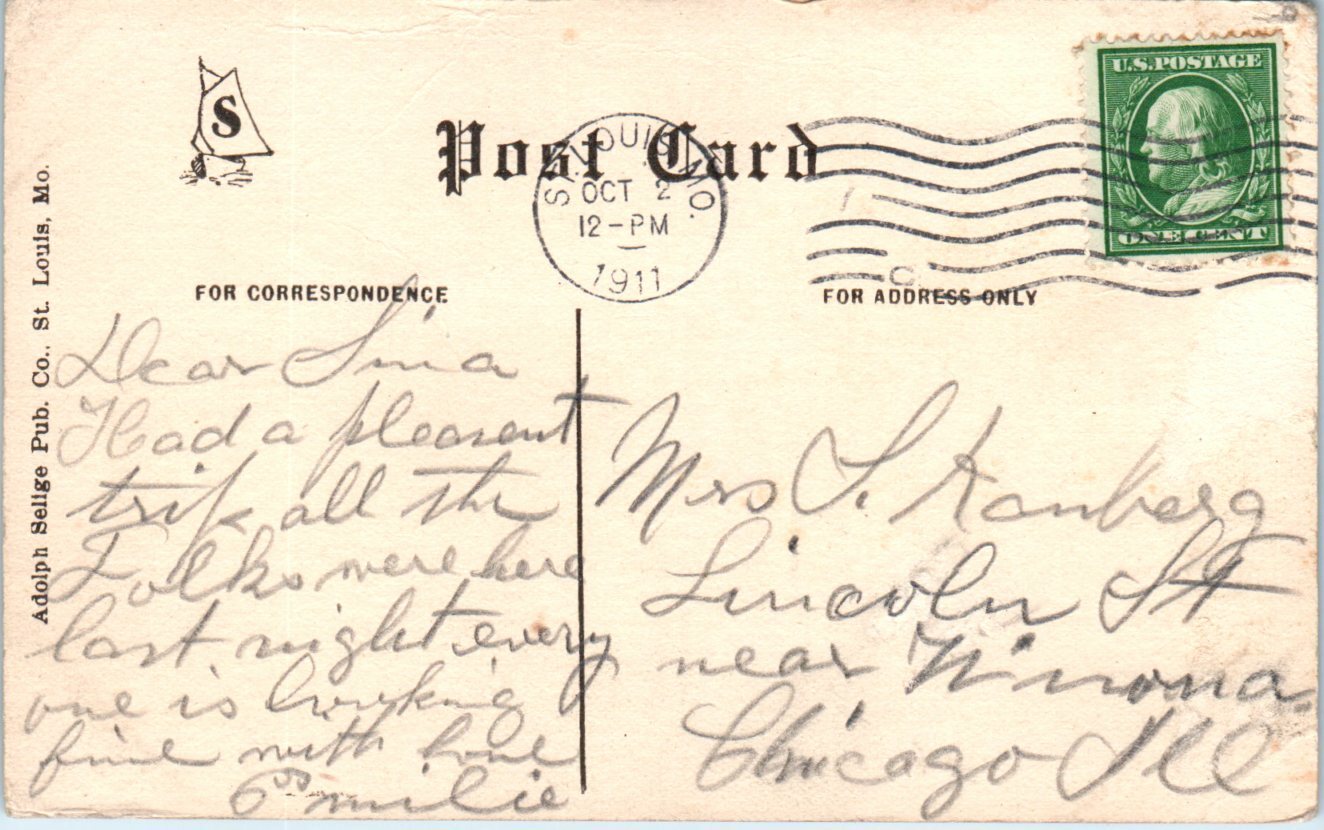 S
Post Card
ST. LOUIS, MO.
OCT 2
12-PM
1911
U.S. POSTAGE
ONE CENT
FOR CORRESPONDENCE
FOR ADDRESS ONLY
Adolph Selige Pub. Co., St. Louis, Mo.
Dear Sina
Had a pleasent
trip all the
Folks were here
last night every
one is looking
fine with love
Emilie
Mrs S. Ranberg
Lincoln St
near Winona
Chicago Ill